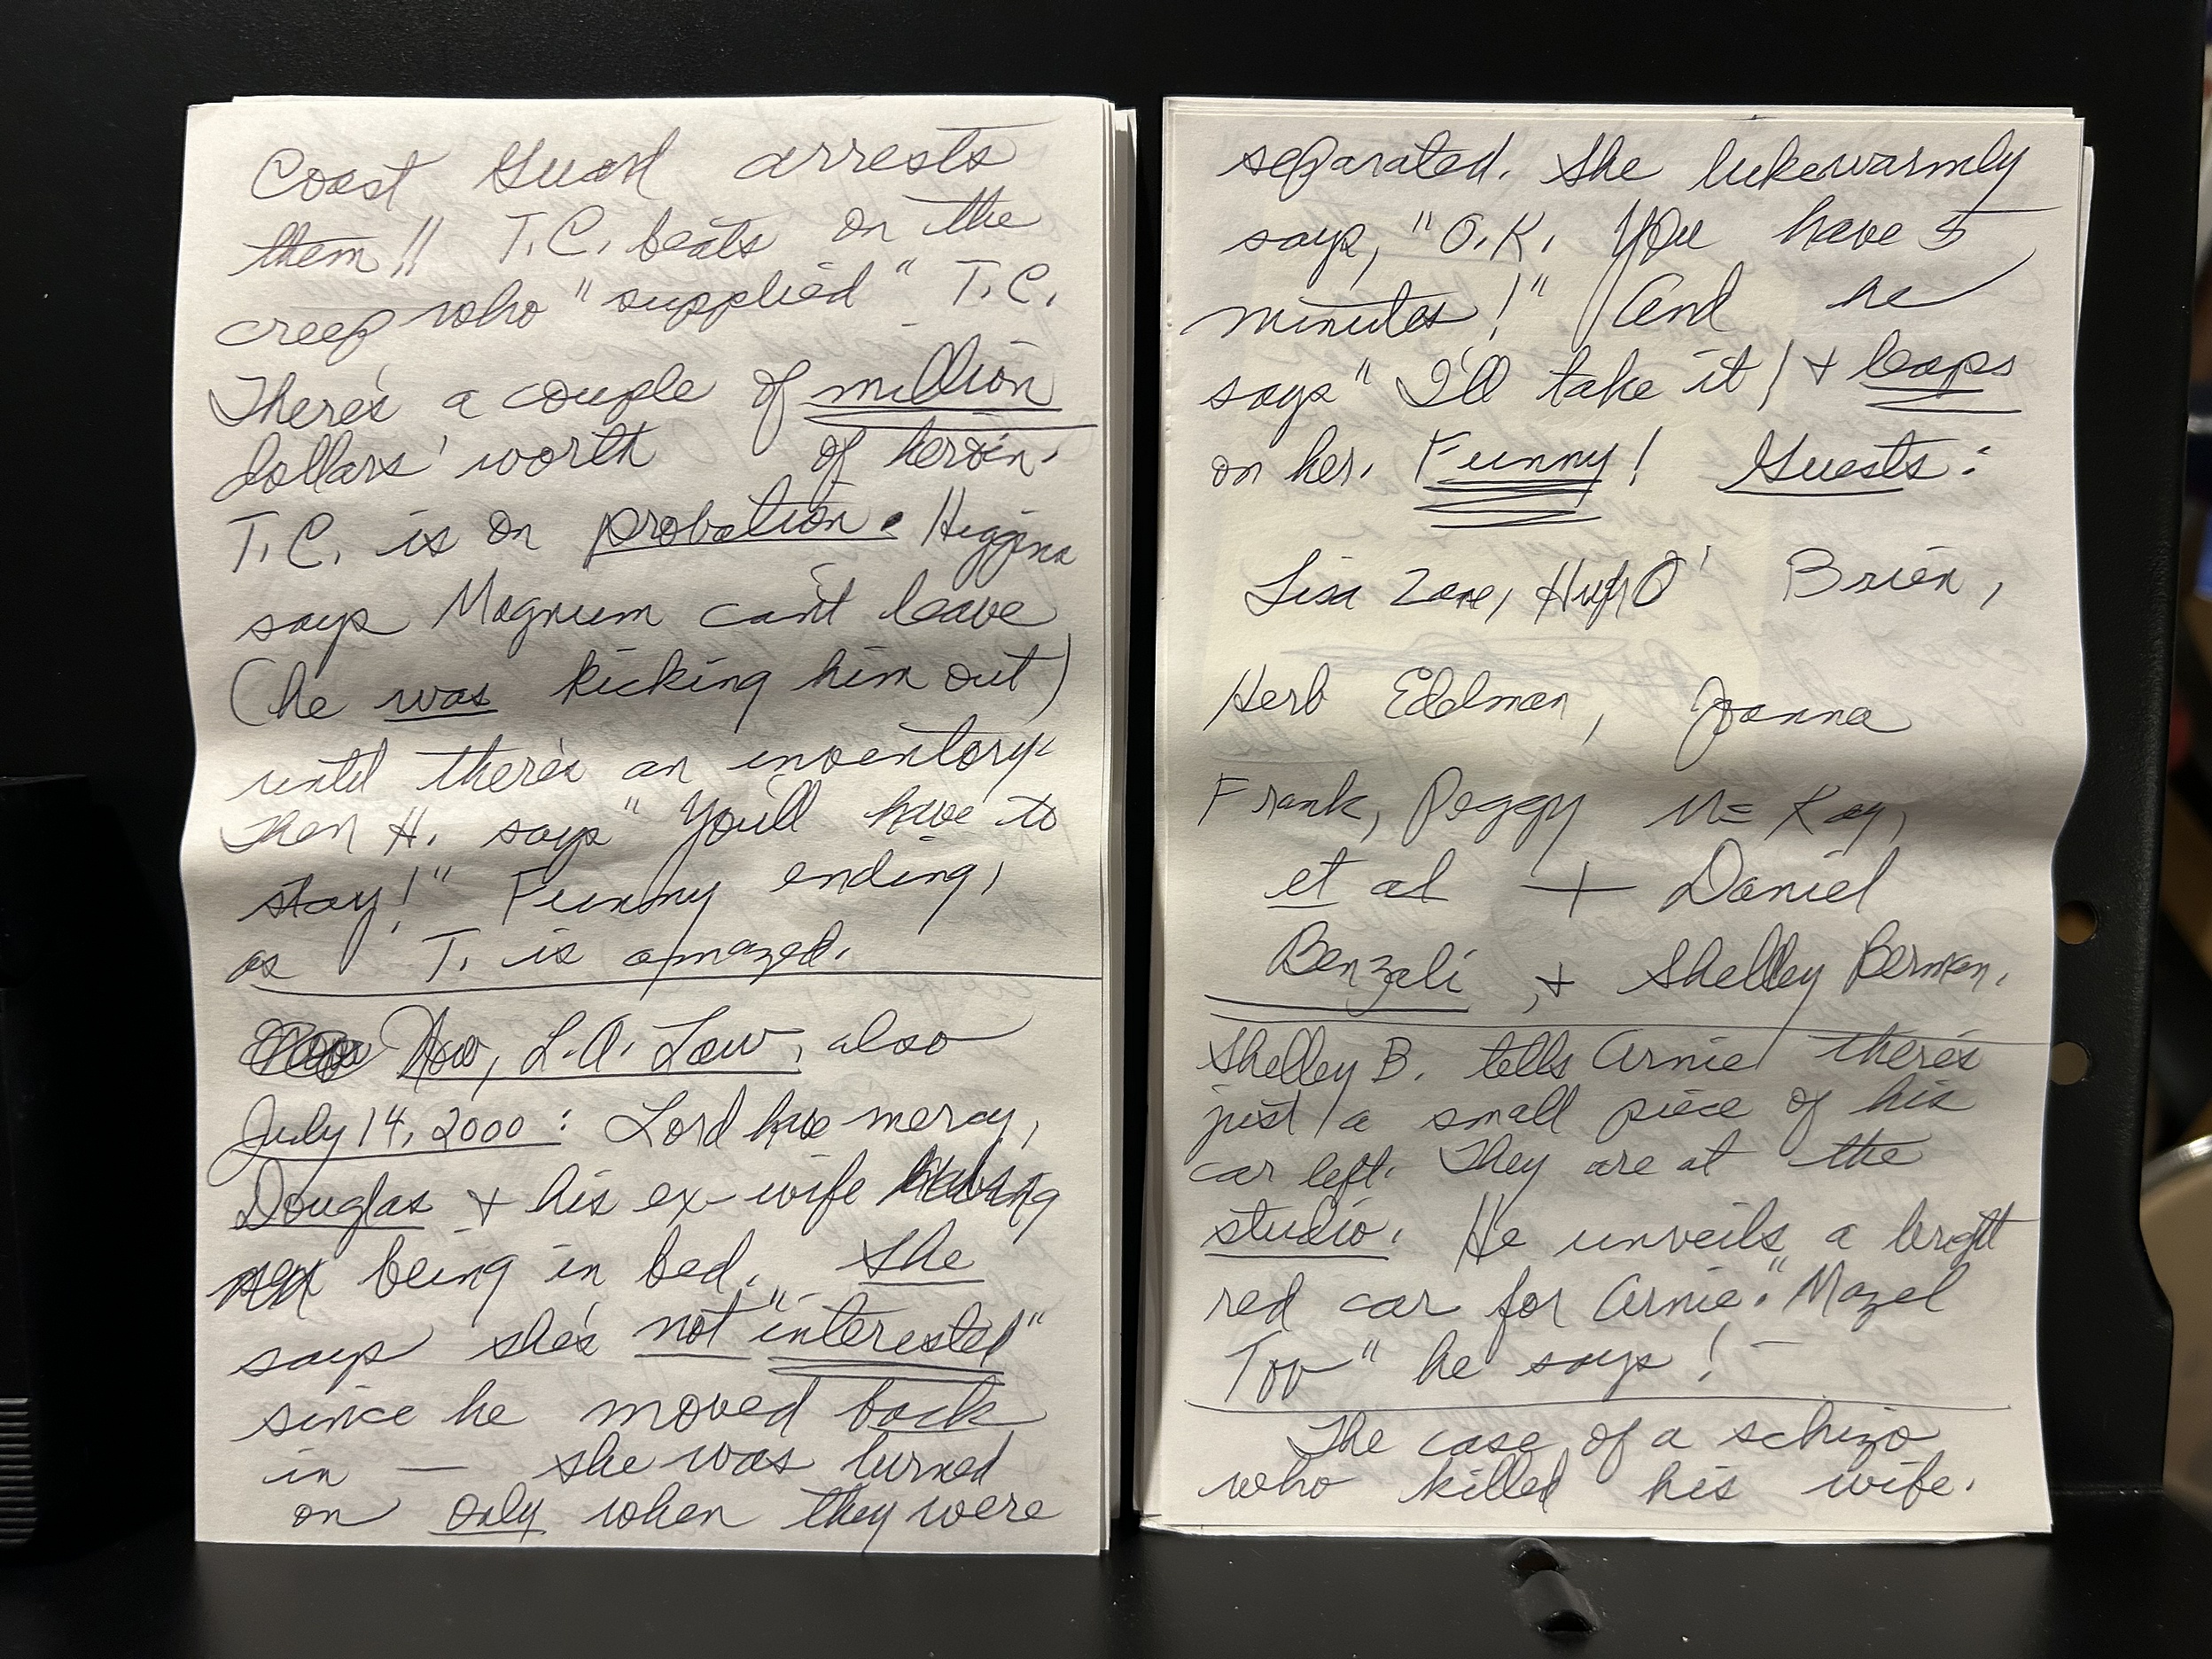 Coast Guard arrests
them!! T.C. beats on the
creep who "supplied" T.C.
There's a couple of million
dollars' worth of heroin.
T.C. is on probation. Higgins
says Magnum can't leave
(he was kicking him out)
until there's an inventory.
Then H. says "You'll have to
stay!" Funny ending,
as T. is amazed.
Now, L.A. Law, also
July 14, 2000: Lord have mercy,
Douglas + his ex-wife
being in bed. She
says she's not "interested"
since he moved back
in — she was turned
on only when they were
separated. She lukewarmly
says, "O.K. You have 5
minutes!" And he
says "I'll take it! + leaps
on her. Funny! Guests:
Lisa Zane, Hugh O' Brien,
Herb Edelman, Joanna
Frank, Peggy Mc Kay,
et al + Daniel
Benzali, + Shelley Berman.
Shelley B. tells Arnie there's
just a small piece of his
car left. They are at the
studio. He unveils a bright
red car for Arnie. "Mazel
Tov" he says! —
The case of a schizo
who killed his wife.